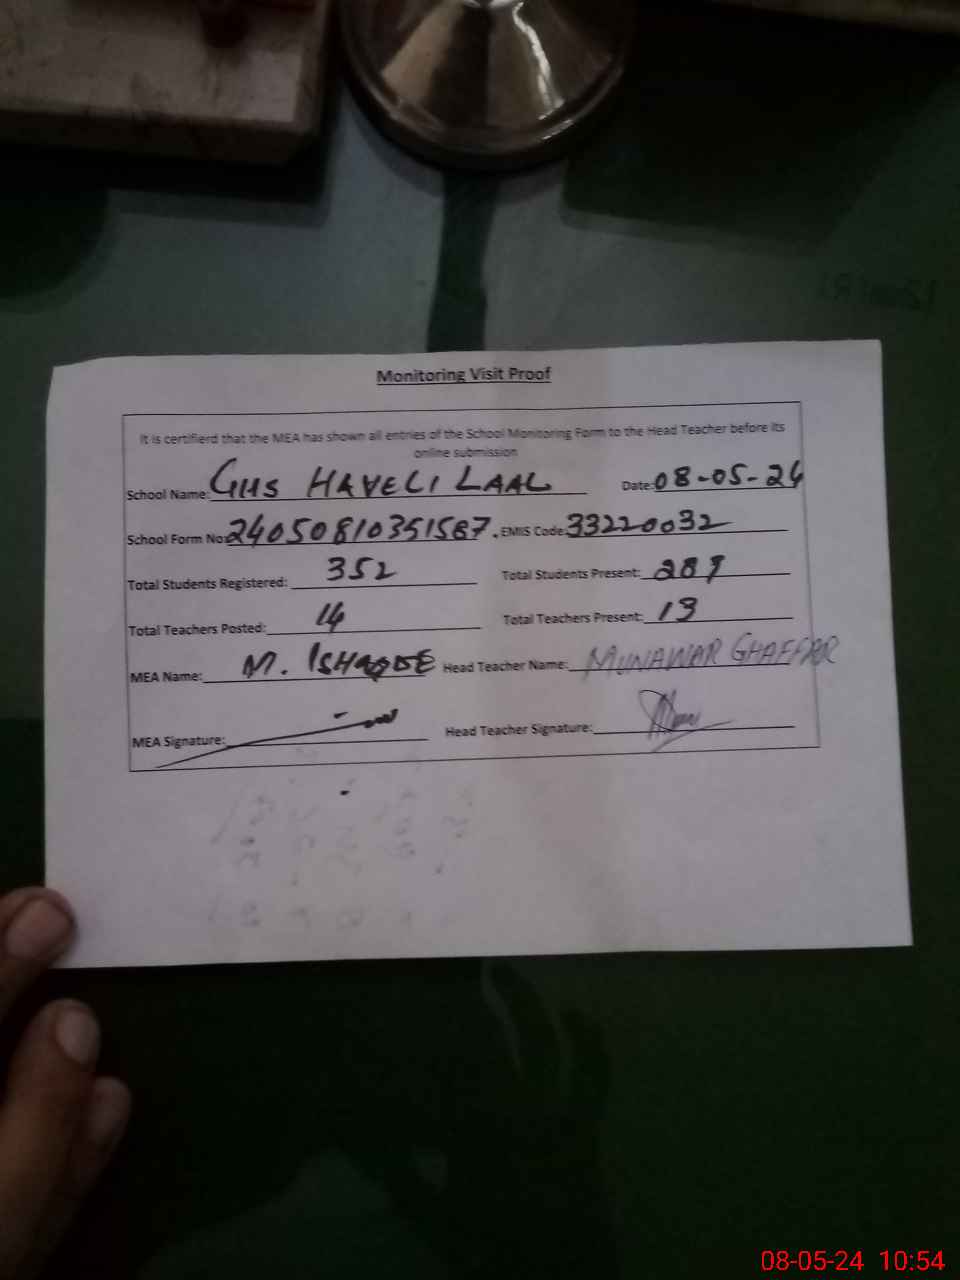 Monitoring Visit Proof
It is certifierd that the MEA has shown all entries of the School Monitoring Form to the Head Teacher before its
online submission
School Name: GHS HAVELI LAAL Date: 08-05-24
School Form No: 24050810351587. EMIS Code: 33220032
Total Students Registered: 352 Total Students Present: 289
Total Teachers Posted: 14 Total Teachers Present: 13
MEA Name: M. ISHAQUE Head Teacher Name: MUNAWAR GHAFFAR
MEA Signature: Head Teacher Signature:
08-05-24 10:54